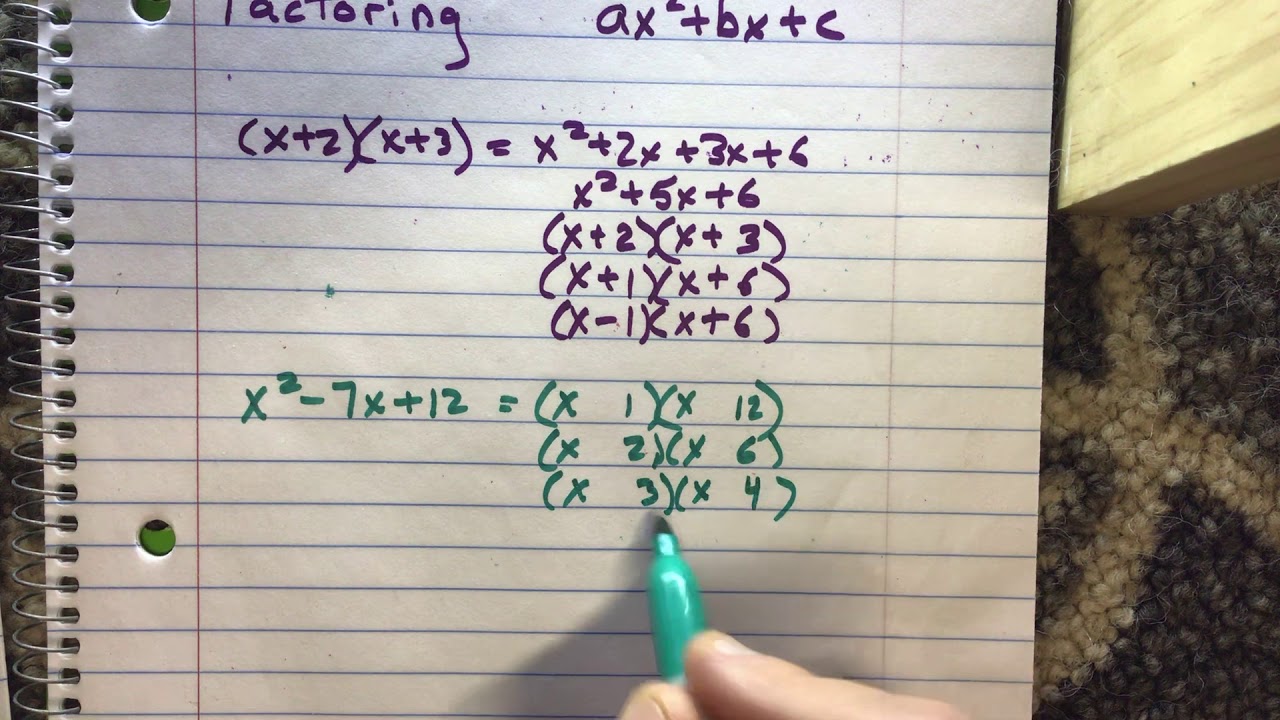 Factoring ax²+bx+c
(x+2)(x+3) = x²+2x+3x+6
x²+5x+6
(x+2)(x+3)
(x+1)(x+6)
(x-1)(x+6)
x²-7x+12 = (x 1)(x 12)
(x 2)(x 6)
(x 3)(x 4)